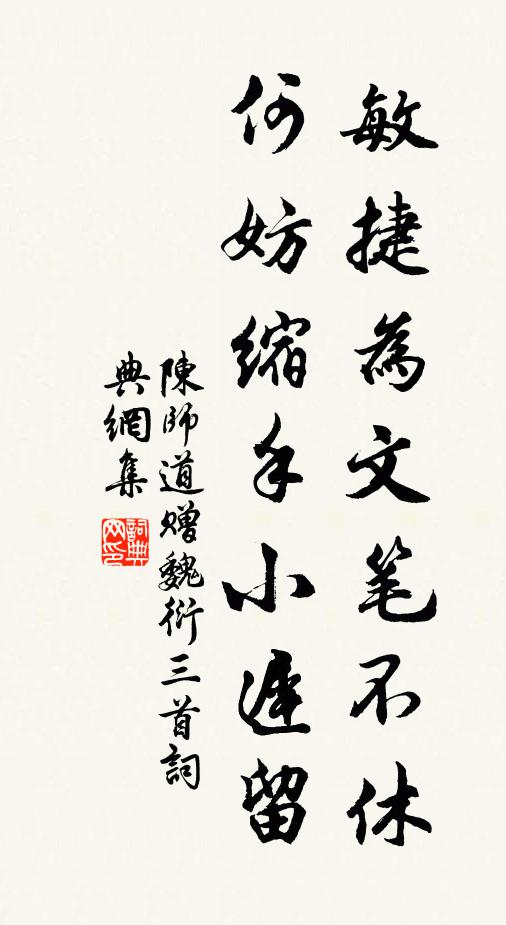 敏捷為文笔不休
何妨縮手小遲留
陳師道贈魏衍三首詞
典網集
詞典网印